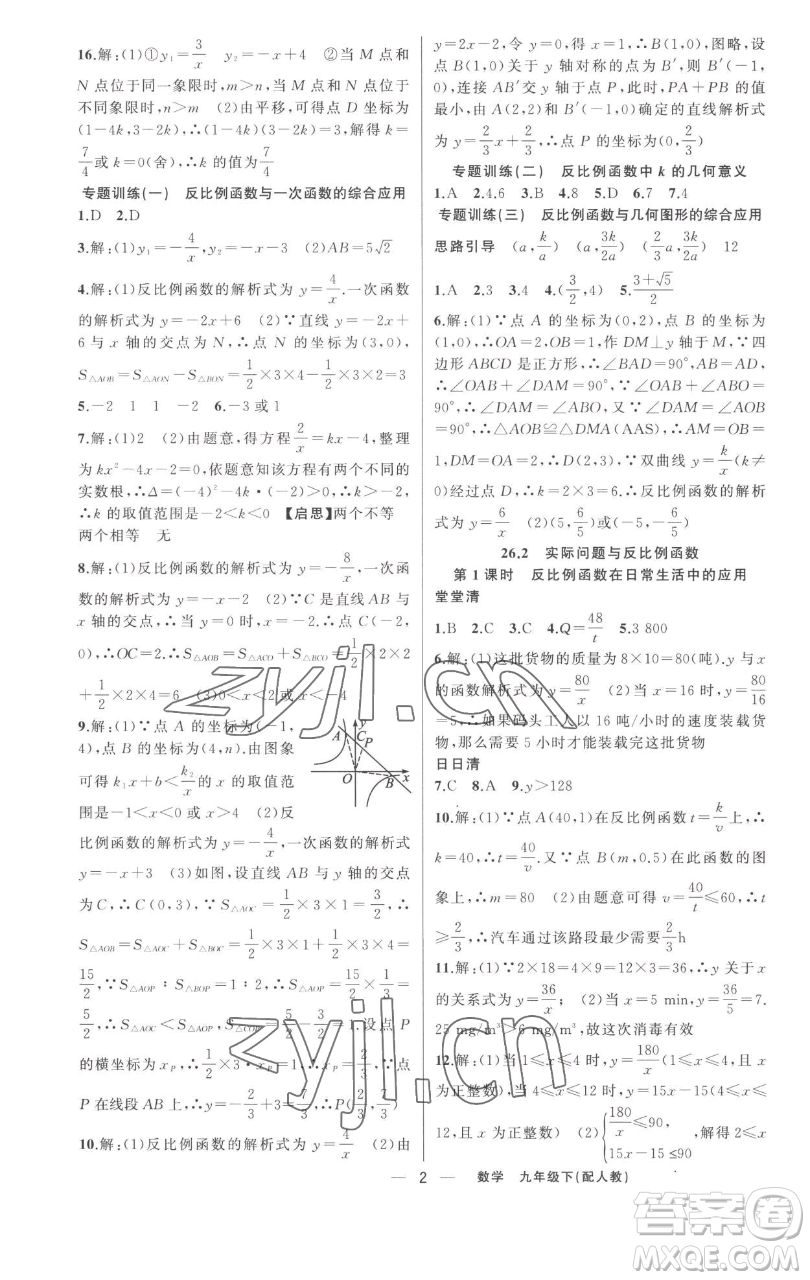 16.解:(1)①y₁=3/x y₂=-x+4 ②当 M 点和
N 点位于同一象限时,m>n,当 M 点和 N 点位于
不同象限时,n>m (2)由平移,可得点 D 坐标为
(1-4k,3-2k),∴(1-4k)(3-2k)=3,解得 k=
7/4或 k=0(舍),∴k 的值为7/4
专题训练(一) 反比例函数与一次函数的综合应用
1.D 2.D
3.解:(1)y₁=-4/x,y₂=-x-3 (2)AB=5√2
4.解:(1)反比例函数的解析式为 y=4/x.一次函数
的解析式为 y=-2x+6 (2)∵直线 y=-2x+
6 与 x 轴的交点为 N,∴点 N 的坐标为(3,0),
S△AOB=S△AON-S△BON=1/2×3×4-1/2×3×2=3
5.-2 1 1 -2 6.-3或1
7.解:(1)2 (2)由题意,得方程2/x=kx-4,整理
为 kx²-4x-2=0,依题意知该方程有两个不同的
实数根,∴Δ=(-4)²-4k·(-2)>0,k>-2,
∴k 的取值范围是-2<k<0 【启思】两个不等
两个相等 无
8.解:(1)反比例函数的解析式为 y=-8/x,一次函
数的解析式为 y=-x-2 (2)∵C 是直线 AB 与
x 轴的交点,∴当 y=0 时,x=-2.∴点 C(-2,
0),∴OC=2.∴S△AOB=S△ACO+S△BCO=1/2×2×2
+1/2×2×4=6 (3)0<x<2或 x<-4
9.解:(1)∵点 A 的坐标为(-1,
4),点 B 的坐标为(4,n).由图象
可得 k₁x+b<k₂/x的 x 的取值范
围是-1<x<0 或 x>4 (2)反
比例函数的解析式为 y=-4/x,一次函数的解析式
为 y=-x+3 (3)如图,设直线 AB 与 y 轴的交点
为 C,∴C(0,3),∵S△AOC=1/2×3×1=3/2,∴
S△AOB=S△AOC+S△BOC=1/2×3×1+1/2×3×4=
15/2,∵S△AOP∶S△BOP=1∶2,∴S△AOP=15/2×1/3=
5/2,∴S△AOC<S△AOP,S△COP=5/2-3/2=1.设点 P
的横坐标为 xP,∴1/2×3·xP=1,∴xP=2/3,∵点
P 在线段 AB 上,∴y=-2/3+3=7/3,∴P(2/3,7/3)
10.解:(1)反比例函数的解析式为 y=4/x (2)由
y=2x-2,令 y=0,得 x=1,∴B(1,0),图略,设
点 B(1,0)关于 y 轴对称的点为 B′,则 B′(-1,
0),连接 AB′交 y 轴于点 P,此时,PA+PB 的值
最小,由 A(2,2)和 B′(-1,0)确定的直线解析式
为 y=2/3x+2/3,∴点 P 的坐标为(0,2/3)
专题训练(二) 反比例函数中 k 的几何意义
1.A 2.4.6 3.B 4.8 5.D 6.7 7.4
专题训练(三) 反比例函数与几何图形的综合应用
思路引导 (a,k/a) (a/2,2k/a) (2/3a,3k/2a) 12
1.A 2.3 3.4 4.(3/2,4) 5.(3+√5)/2
6.解:(1)∵点 A 的坐标为(0,2),点 B 的坐标为
(1,0),∴OA=2,OB=1,作 DM⊥y 轴于 M,∵四
边形 ABCD 是正方形,∴∠BAD=90°,AB=AD,
∴∠OAB+∠DAM=90°,∵∠OAB+∠ABO=
90°,∴∠DAM=∠ABO,又∵∠DMA=∠AOB
=90°,∴△AOB≌△DMA(AAS),∴AM=OB=
1,DM=OA=2,∴D(2,3),∵双曲线 y=k/x(k≠
0)经过点 D,∴k=2×3=6,∴双曲线的解析
式为 y=6/x (2)(5,6/5)或(-5,-6/5)
26.2 实际问题与反比例函数
第 1 课时 反比例函数在日常生活中的应用
堂堂清
1.B 2.C 3.C 4.Q=48/t 5.3 800
6.解:(1)这批货物的质量为 8×10=80(吨).y 与 x
的函数解析式为 y=80/x (2)当 x=16 时,y=80/16
=5,∴如果码头工人以 16 吨/小时的速度装载货
物,那么需要 5 小时才能装载完这批货物
日日清
7.C 8.A 9.y>128
10.解:(1)∵点 A(40,1)在反比例函数 t=k/v上,∴
k=40,∴t=40/v.又∵点 B(m,0.5)在此函数的图
象上,∴m=80 (2)由题意可得 v=40/t≤60,∴t
≥2/3,∴汽车通过该路段最少需要2/3h
11.解:(1)∵2×18=4×9=12×3=36,∴y 关于 x
的关系式为 y=36/x; (2)当 x=5 min,y=36/5=7.
25 mg/m³>6 mg/m³,故这次消毒有效
12.解:(1)当 1≤x≤4 时,y=180/x(1≤x≤4,且 x
为正整数);当 4≤x≤12 时,y=15x-15(4≤x≤
12,且 x 为正整数) (2){180/x≤90, 15x-15≤90 ,解得 2≤x
— 2 — 数学 九年级下(配人教)
zyjl.cn
zyjl.cn
答案圈
MXQE.COM